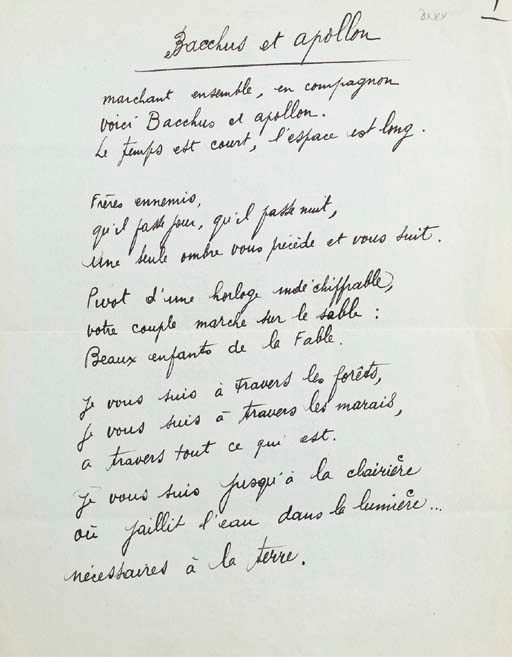 Bacchus et apollon
marchant ensemble, en compagnon
voici Bacchus et apollon.
Le temps est court, l'espace est long.
Frères ennemis,
qu'il fasse jour, qu'il fasse nuit,
une seule ombre vous précède et vous suit.
Pivot d'une horloge indéchiffrable,
votre couple marche sur le sable :
Beaux enfants de la Fable.
Je vous suis à travers les forêts,
je vous suis à travers les marais,
a travers tout ce qui est.
Je vous suis jusqu'à la clairière
où jaillit l'eau dans la lumière...
nécessaires à la terre.